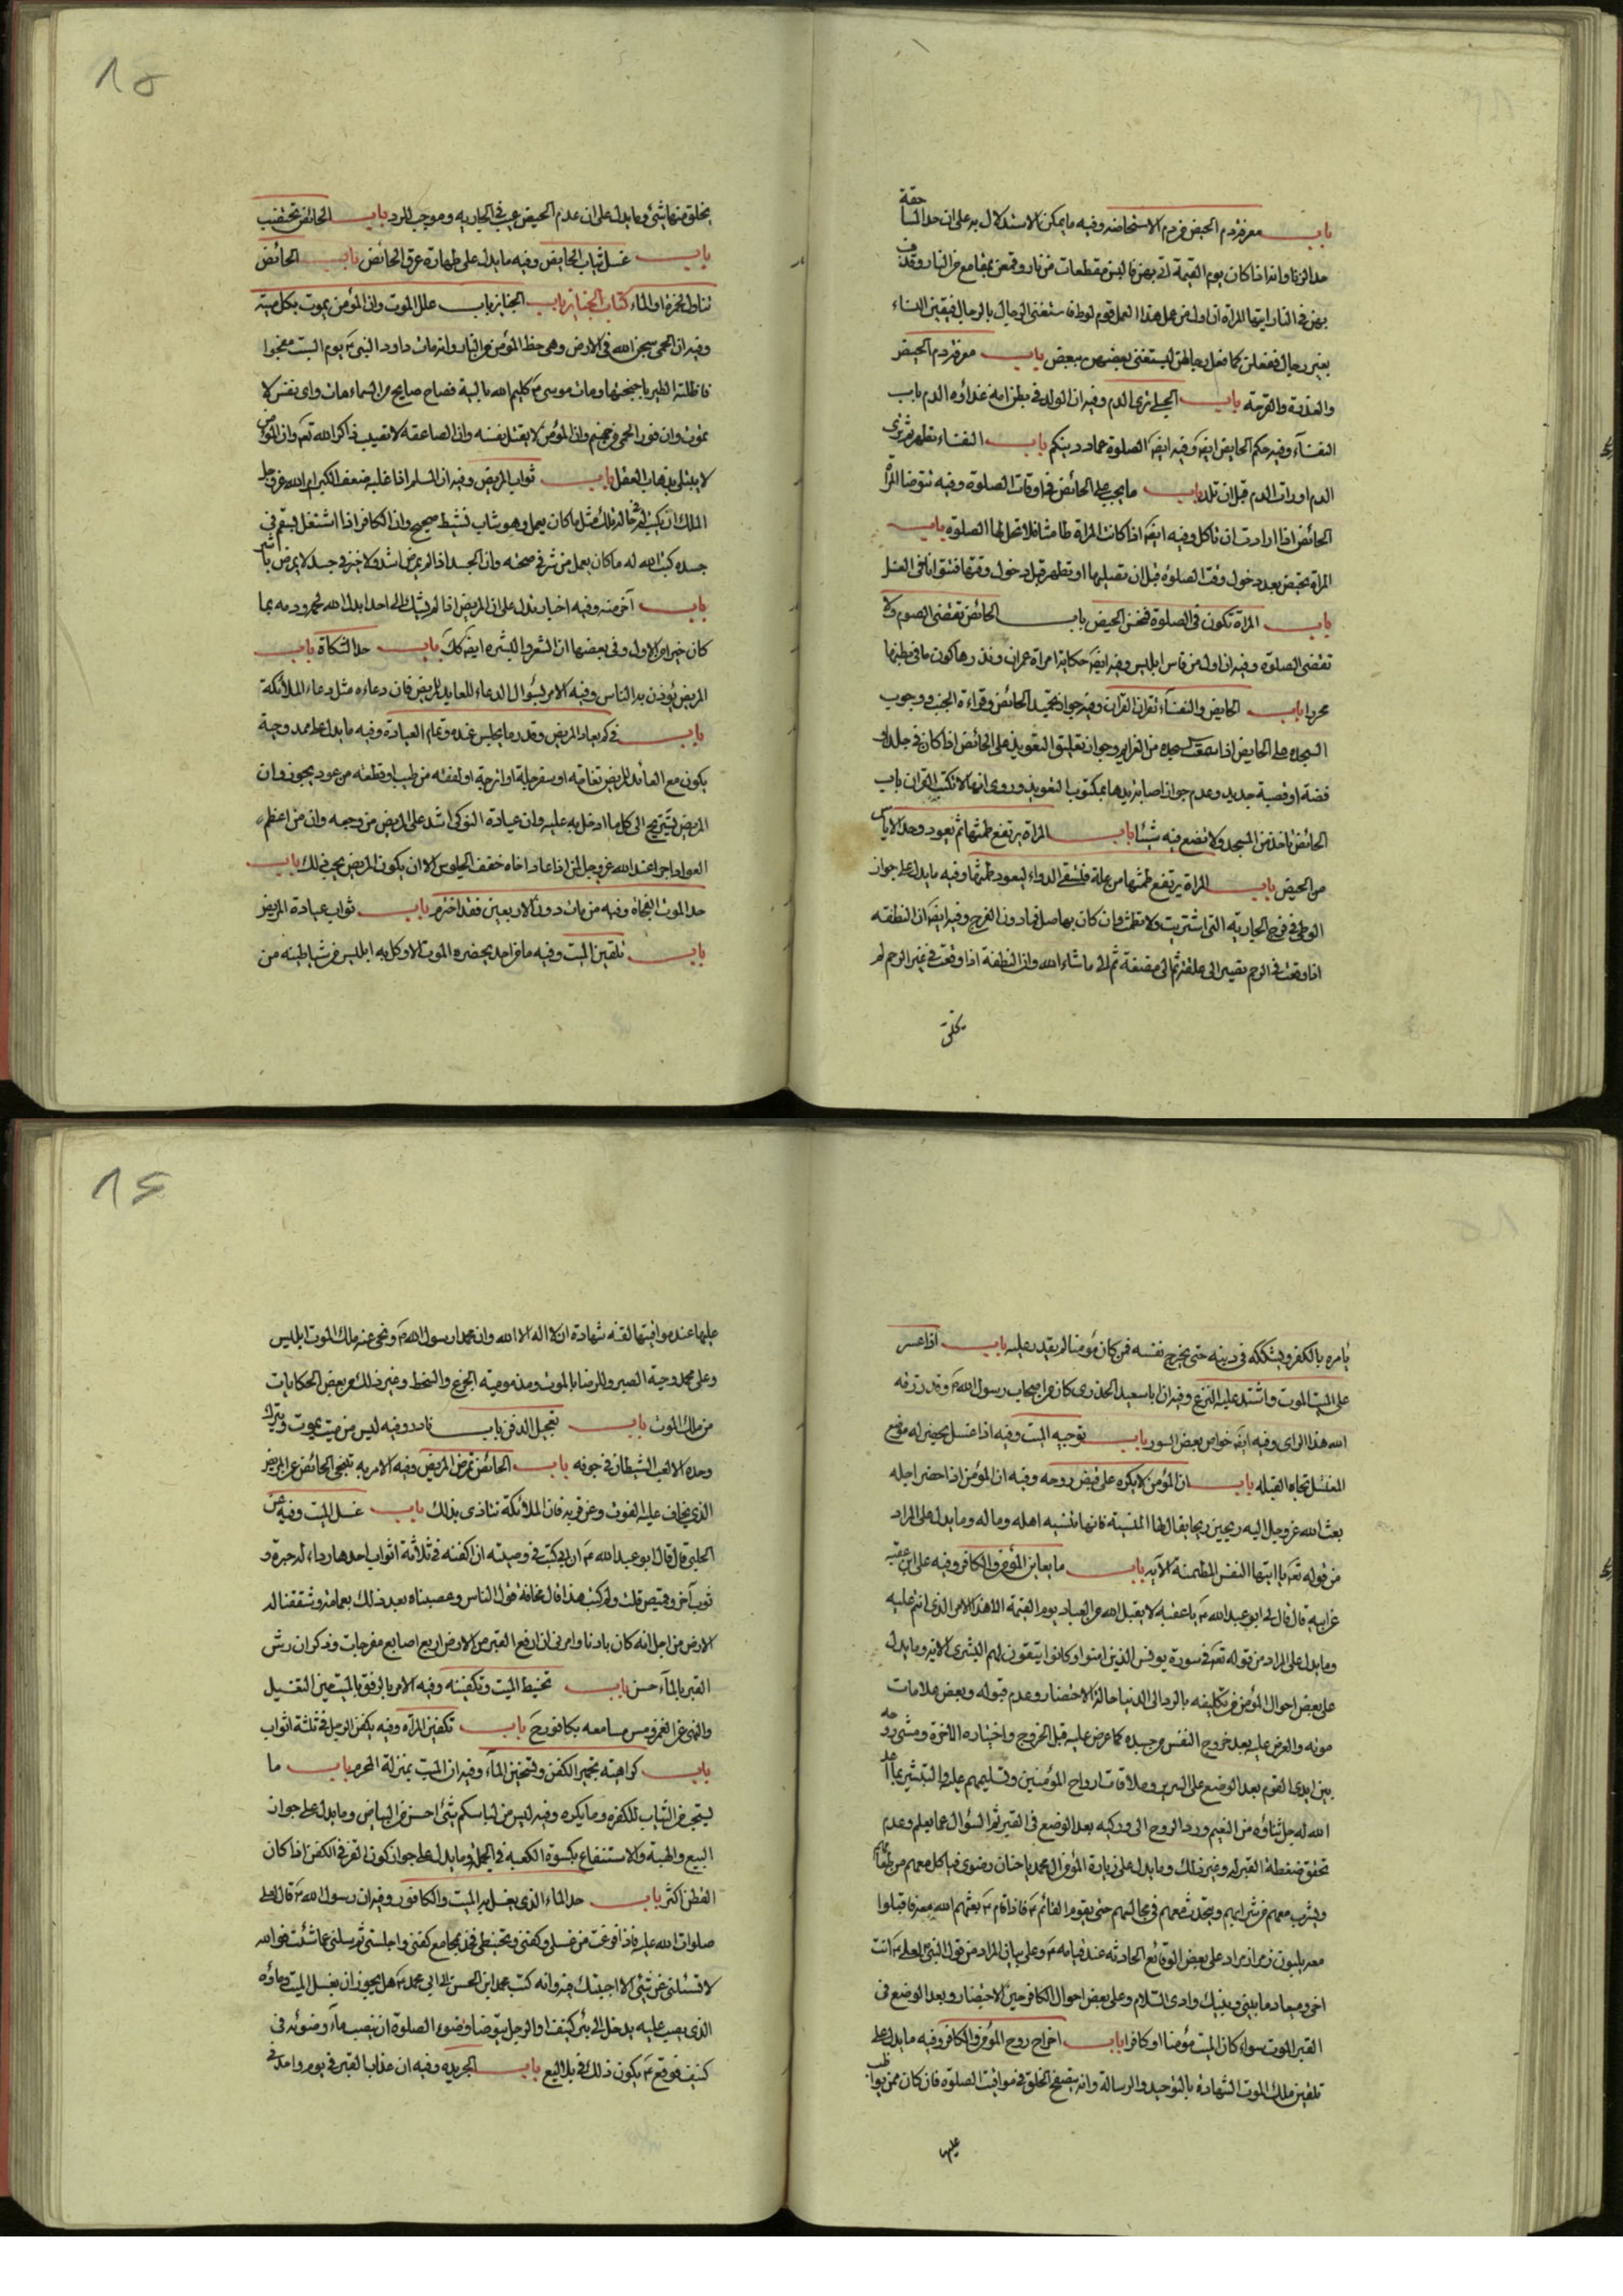 باب معرفة دم الحيض من دم الاستحاضه وفيه ما يمكن الاستدلال به على ان حد المساحقة
حد الزنا وانه اذا كان يوم القيمة اتى بهن قد البس مقطعات من نار وقمعن بمقامع من النار وقذف
بهن في النار ايتها المراة ان اول من عمل هذا العمل قوم لوط فاستغنى الرجال بالرجال فبقين النساء
بغير رجال ففعلن كما فعل رجالهن ليستغنى بعضهن ببعض باب معرفة دم الحيض
والعذرة والقرحة باب الحبلى ترى الدم وفيه ان الولد في بطن امه غذاؤه الدم باب
النفسآء وفيه حكم الحايض ايضا وفيه ايضا الصلوة عماد دينكم باب النفساء تطهر ثم ترى
الدم او رات الدم قبل ان تلد باب ما يجب على الحائض في اوقات الصلوة وفيه تتوضا المراة
الحائض اذا ارادت ان تاكل وفيه ايضا اذا كانت المراة طامثا فلا تحل لها الصلوة باب
المراة تحيض بعد دخول وقت الصلوة قبل ان تصليها او تطهر قبل دخول وقتها فتتوانا في الغسل
باب المراة تكون في الصلوة فتحس الحيض باب الحائض تقضى الصوم ولا
تقضى الصلوة وفيه ان اول من قاس ابليس وفيه ايضا حكاية امراة عمران ونذرها كون ما في بطنها
محررا باب الحايض والنفسآء تقران القران وفيه جواز تحميد الحائض وقراءة الجنب ووجوب
السجدة على الحايض اذا سمعت سجدة من العزايم وجواز تعليق التعويذ على الحائض اذا كان في جلد او
فضة او قصبة حديد وعدم جواز اصابتر يدها بمكتوب التعويذ وروى انها لا تكتب القران باب
الحائض تاخذ من المسجد ولا تضع فيه شيئا باب المراة يرتفع طمثها ثم يعود وحد الاياس
من الحيض باب المراة يرتفع طمثها من علة فتسقى الدواء ليعود طمثها وفيه ما يدل على جواز
الوطى في فرج الجارية التى اشتريت ولا تطمث وان كان بها حمل فما دون الفرج وفيه ايضا ان النطفه
اذا وقعت في الرحم تصير الى علقة ثم الى مضغة ثم الى ما شاء الله وان النطفة اذا وقعت في غير الرحم لم
يخلق
يخلق منها شئ وما يدل على ان عدم الحيض عيب في الجارية وموجب للرد باب الحائض تختضب
باب غسل ثياب الحايض وفيه ما يدل على طهارة عرق الحائض باب الحائض
تناول الخمرة او الماء كتاب الجنايز باب الجنايز باب علل الموت وان المؤمن يموت بكل ميتة
وفيه ان الحمى سجن الله في الارض وهى حظ المؤمن من النار وانه مات داود النبى ع يوم السبت مفجوا
فاظلته الطير باجنحتها ومات موسى ع كليم الله بالتيه فصاح صايح من السماء مات واى نفس لا
تموت وان فور الحمى من جهنم وان المؤمن لا يقتل نفسه وان الصاعقة لا تصيب ذاكر الله تعه وان المؤمن
لا يبتلى بذهاب العقل باب ثواب المريض وفيه ان المسلم اذا غلبه ضعف الكبر امر الله عز وجل
الملك ان يكتب له في حاله تلك مثل ما كان يعمل وهو شاب نشيط صحيح وان الكافر اذا اشتغل بسقم في
جسده كتب الله له ما كان يعمل من شر في صحته وان الجسد اذا لم يمرض اشر ولا خير في جسد لا يمرض باشر
باب آخر منه وفيه اخبار تدل على ان المريض اذا لم يشك الى احد ابدل الله لحمه ودمه بما
كان خيرا من الاول وفي بعضها ان الشعر والبشرة ايضا كك باب حد الشكاة باب
المريض يؤذن به الناس وفيه الامر بسؤال الدعاء للعايد المريض فان دعاءه مثل دعاء الملائكة
باب في كم يعاد المريض وقدر ما يجلس عنده وتمام العيادة وفيه ما يدل على ممدوحية
يكون مع العائد للمريض تفاحة او سفرجلة او اترجة او لعقة من طيب او قطعة من عود بجور وان
المريض يستريح الى كل ما ادخل به عليه وان عيادة النوكى اشد على المريض من وجعه وان من اعظم
العواد اجرا عند الله عز وجل لمن اذا عاد اخاه خفف الجلوس الا ان يكون المريض يحب ذلك باب
حد الموت الفجاة وفيه من مات دون الاربعين فقد اخترم باب ثواب عيادة المريض
باب تلقين الميت وفيه ما من احد يحضره الموت الا وكل به ابليس من شياطينه من
يامره بالكفر ويشككه في دينه حتى يخرج نفسه فمن كان مؤمنا لم يقدر عليه باب اذا عسر
على الميت الموت واشتد عليه النزع وفيه ان ابا سعيد الخدرى كان من اصحاب رسول الله ص وقد رزقه
الله هذا الراى وفيه ايضا خواص بعض السور باب توجيه الميت وفيه اذا غسل يحفر له موضع
المغتسل تجاه القبله باب ان المؤمن لا يكره على قبض روحه وفيه ان المؤمن اذا حضر اجله
بعث الله عز وجل اليه ريحين ريحا يقال لها المنسية فانها تنسيه اهله وماله وما يدل على المراد
من قوله تعه يا ايتها النفس المطمئنة الآيه باب ما يعاين المؤمن والكافر وفيه على ابن عقبه
عن ابيه قال قال لى ابو عبد الله ع يا عقبه لا يقبل الله من العباد يوم القيمة الا هذا الامر الذى انتم عليه
وما يدل على المراد من قوله تعه في سورة يونس الذين امنوا وكانوا يتقون لهم البشرى الاية وما يدل
على بعض احوال المؤمن من تكليفه بالرد الى الدنيا حالة الاحتضار وعدم قبوله وبعض علامات
موته والعرض عليه بعد خروج النفس من جسده كما عرض عليه قبل الخروج واختياره الآخرة ومشى روحه
بين ايدى القوم بعد الوضع على السرير وملاقات ارواح المؤمنين وتسليمهم عليه والتبشير بما اعد
الله له جل ثناؤه من النعيم ورد الروح الى وركيه بعد الوضع في القبر ثم السؤال عما يعلم وعدم
تحقق ضغطة القبر له وغير ذلك وما يدل على زيارة المؤمن ال محمد با جنان رضوى فياكل معهم من طعامهم
ويشرب معهم من شرابهم ويتحدث معهم في مجالسهم حتى يقوم القائم ع فاذا قام ع بعثهم الله معه فاقبلوا
معه يلبون زمرا زمرا دعلى بعض الوقائع الحادثه عند قيامه ع وعلى بيان المراد من قول النبى لعلى ع انت
اخى وميعاد ما بينى وبينك وادى السلام وعلى بعض احوال الكافر حين الاحتضار وبعد الوضع في
القبر الموت سواء كان الميت مؤمنا او كافرا باب اخراج روح المؤمن والكافر وفيه ما يدل على
تلقين ملك الموت الشهادة بالتوحيد والرسالة وانه يتصفح الخلق في مواقيت الصلوة فان كان ممن يواظب
عليها
عليها عند مواقيتها لقنه شهادة ان لا اله الا الله وان محمدا رسول الله ص ونحى عنه ملك الموت ابليس
وعلى ممدوحية الصبر والرضا بالموت ومذموميه الجزع والسخط وغير ذلك من بعض الحكايات
من ملك الموت باب تعجيل الدفن باب نادر وفيه ليس من ميت يموت ويترك
وحده الا لعب الشيطان في جوفه باب الحائض تمرض المريض وفيه الامر به تنحى الحائض عن المريض
الذى يخاف عليه الفوت وعن قربه فان الملائكة تتاذى بذلك باب غسل الميت وفيه عن
الحلبى قال قال ابو عبد الله ع ان ابى كتب في وصيته ان اكفنه في ثلاثة اثواب احدها رداء له حبرة و
ثوب آخر وقميص قلت ولم كتبت هذا قال مخافة قول الناس وعصبناه بعد ذلك بعمامة وشققنا له
الارض من اجل انه كان بادنا وامرنى ان ارفع القبر من الارض اربع اصابع مفرجات وذكر ان رش
القبر بالمآء حسن باب تحنيط الميت وتكفينه وفيه الامر بالرفق بالميت حين التغسيل
والنهى عن الغمز ومس مسامعه بكافور ح باب تكفين المرآه وفيه يكفن الرجل في ثلثة اثواب
باب كراهية تجمير الكفن وتسخين المآء وفيه ان الميت بمنزلة المحرم باب ما
يستحب من الثياب للكفن وما يكره وفيه ليس من لباسكم شئ احسن من البياض وما يدل على جواز
البيع والهبة والاستنفاع بكسوة الكعبه في الجملة وما يدل على جواز كون القز في الكفن اذا كان
القطن اكثر باب حد الماء الذى يغسل به الميت والكافور وفيه ان رسول الله ص قال لعلى
صلوات الله عليه فاذا فرغت من غسلى وكفنى وتحنيطى فخذ بمجامع كفنى واجلسنى ثم سلنى عما شئت فوالله
لا تسئلنى عن شئ الا اجبتك فيه وانه كتب محمد ابن الحسن الى ابى محمد ع هل يجوز ان يغسل الميت وماؤه
الذى يصب عليه يدخل الى بئر كنيف او الرجل يتوضا وضوء الصلوة ان يصب مآء وضوئه في
كنيف فوقع ع يكون ذلك في بلاليع باب الجريدة وفيه ان عذاب القبر في يوم واحد في